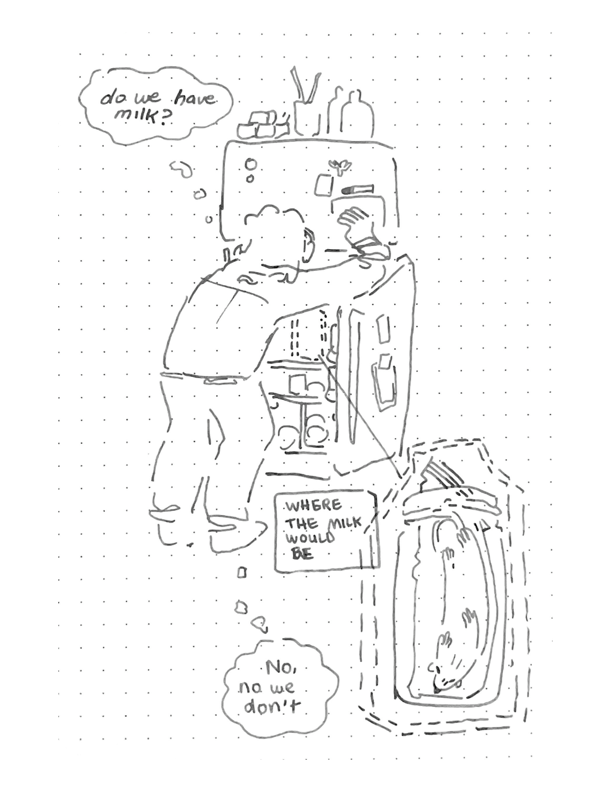 do we have
milk?
WHERE
THE MILK
WOULD
BE
No,
no we
don't